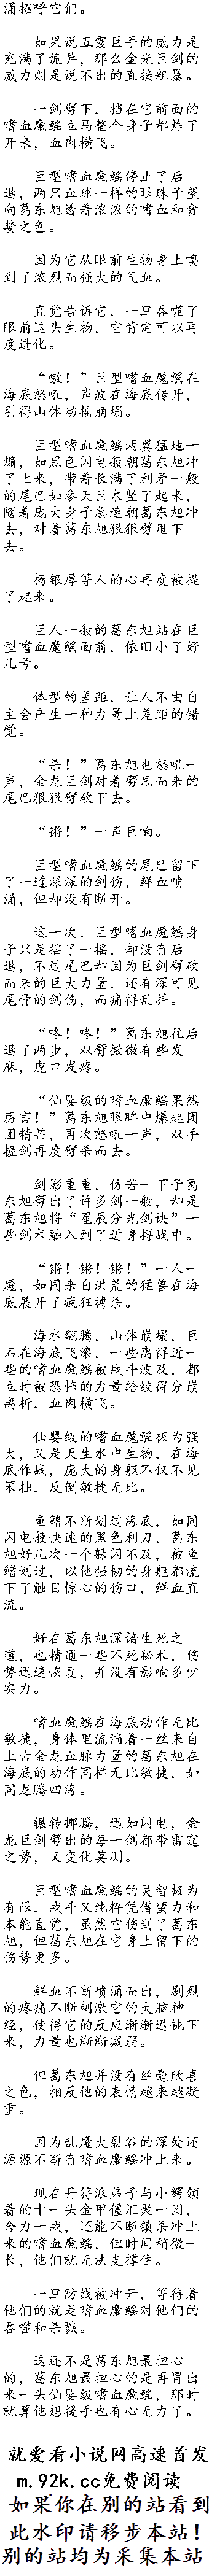 涌招呼它们。
如果说五霞巨手的威力是
充满了诡异，那么金光巨剑的
威力则是说不出的直接粗暴。
一剑劈下，挡在它前面的
嗜血魔鳐立马整个身子都炸了
开来，血肉横飞。
巨型嗜血魔鳐停止了后
退，两只血球一样的眼珠子望
向葛东旭透着浓浓的嗜血和贪
婪之色。
因为它从眼前生物身上嗅
到了浓烈而强大的气血。
直觉告诉它，一旦吞噬了
眼前这头生物，它肯定可以再
度进化。
“嗷！”巨型嗜血魔鳐在
海底怒吼，声波在海底传开，
引得山体动摇崩塌。
巨型嗜血魔鳐两翼猛地一
煽，如黑色闪电般朝葛东旭冲
了上来，带着长满了利矛一般
的尾巴如参天巨木竖了起来，
随着庞大身子急速朝葛东旭冲
去，对着葛东旭狠狠劈甩下
去。
杨银厚等人的心再度被提
了起来。
巨人一般的葛东旭站在巨
型嗜血魔鳐面前，依旧小了好
几号。
体型的差距，让人不由自
主会产生一种力量上差距的错
觉。
“杀！”葛东旭也怒吼一
声，金龙巨剑对着劈甩而来的
尾巴狠狠劈砍下去。
“锵！”一声巨响。
巨型嗜血魔鳐的尾巴留下
了一道深深的剑伤，鲜血喷
涌，但却没有断开。
这一次，巨型嗜血魔鳐身
子只是摇了一摇，却没有后
退，不过尾巴却因为巨剑劈砍
而来的巨大力量，还有深可见
尾骨的剑伤，而痛得乱抖。
“咚！咚！”葛东旭往后
退了两步，双臂微微有些发
麻，虎口发疼。
“仙婴级的嗜血魔鳐果然
厉害！”葛东旭眼眸中爆起团
团精芒，再次怒吼一声，双手
握剑再度劈杀而去。
剑影重重，仿若一下子葛
东旭劈出了许多剑一般，却是
葛东旭将“星辰分光剑诀”一
些剑术融入到了近身搏战中。
“锵！锵！锵！”一人一
魔，如同来自洪荒的猛兽在海
底展开了疯狂搏杀。
海水翻腾，山体崩塌，巨
石在海底飞滚，一些离得近一
些的嗜血魔鳐被战斗波及，都
立时被恐怖的力量给绞得分崩
离析，血肉横飞。
仙婴级的嗜血魔鳐极为强
大，又是天生水中生物，在海
底作战，庞大的身躯不仅不见
笨拙，反倒敏捷无比。
鱼鳍不断划过海底，如同
闪电般快速的黑色利刃，葛东
旭好几次一个躲闪不及，被鱼
鳍划过，以他强韧的身躯都流
下了触目惊心的伤口，鲜血直
流。
好在葛东旭深谙生死之
道，也精通一些不死秘术，伤
势迅速恢复，并没有影响多少
实力。
嗜血魔鳐在海底动作无比
敏捷，身体里流淌着一丝来自
上古金龙血脉力量的葛东旭在
海底的动作同样无比敏捷，如
同龙腾四海。
辗转挪腾，迅如闪电，金
龙巨剑劈出的每一剑都带雷霆
之势，又变化莫测。
巨型嗜血魔鳐的灵智极为
有限，战斗又纯粹凭借蛮力和
本能直觉，虽然它伤到了葛东
旭，但葛东旭在它身上留下的
伤势更多。
鲜血不断喷涌而出，剧烈
的疼痛不断刺激它的大脑神
经，使得它的反应渐渐迟钝下
来，力量也渐渐减弱。
但葛东旭并没有丝毫欣喜
之色，相反他的表情越来越凝
重。
因为乱魔大裂谷的深处还
源源不断有嗜血魔鳐冲上来。
现在丹符派弟子与小鳄领
着的十一头金甲僵汇聚一团，
合力一战，还能不断镇杀冲上
来的嗜血魔鳐，但时间稍微一
长，他们就无法支撑住。
一旦防线被冲开，等待着
他们的就是嗜血魔鳐对他们的
吞噬和杀戮。
这还不是葛东旭最担心
的，葛东旭最担心的是再冒出
来一头仙婴级嗜血魔鳐，那时
就算他想援手也有心无力了。
就爱看小说网高速首发
m.92k.cc免费阅读
如果你在别的站看到
此水印请移步本站！
别的站均为采集本站